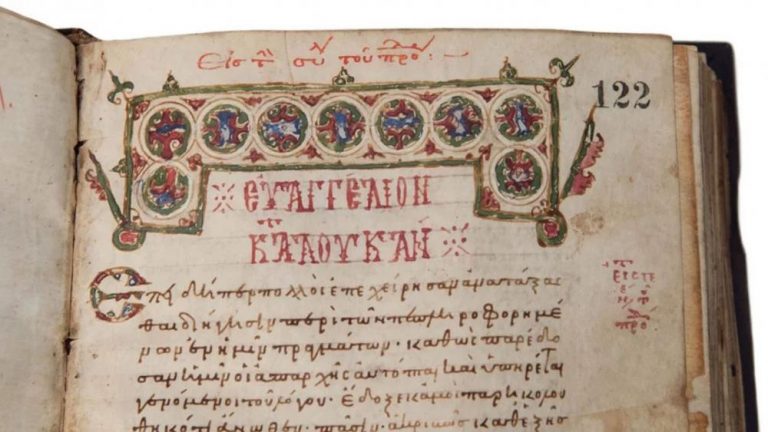 Εἰς τὴ σύ τοῦ προ
122
ΕΥΑΓΓΕΛΙΟΝ
ΚΑΤΑ ΛΟΥΚΑΝ
Ἐπειδήπερ πολλοὶ ἐπεχείρησαν ἀνατάξασ
θαι διήγησιν περὶ τῶν πεπληροφορημέ
νων ἐν ἡμῖν πραγμάτων· καθὼς παρέδο
σαν ἡμῖν οἱ ἀπαρχῆς αὐτόπται καὶ ὑπηρέται
γενόμενοι τοῦ λόγου· ἔδοξε κἀμοὶ παρηκολου
θηκότι ἄνωθεν· πᾶσιν ἀκριβῶς καθεξῆς